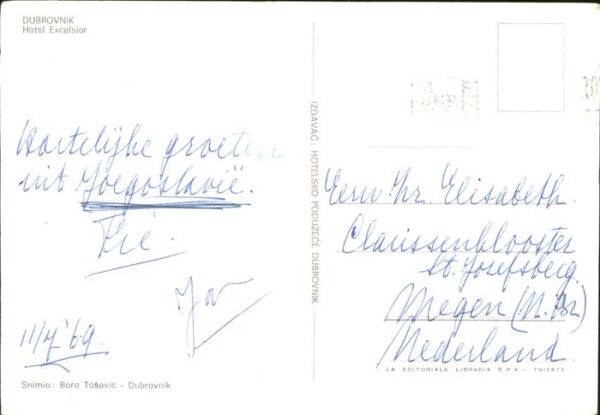 DUBROVNIK
Hotel Excelsior
Hartelijke groeten
uit Joegoslavië.
Rie.
Jan
11/7 '69
Snimio: Boro Tošović - Dubrovnik
IZDAVAČ: HOTELSKO PODUZEĆE DUBROVNIK
Eerw. Zr. Elisabeth.
Clarissenklooster
St. Josefsberg
Megen (N. Br)
Nederland.
LA EDITORIALE LIBRARIA S.P.A. - TRIESTE